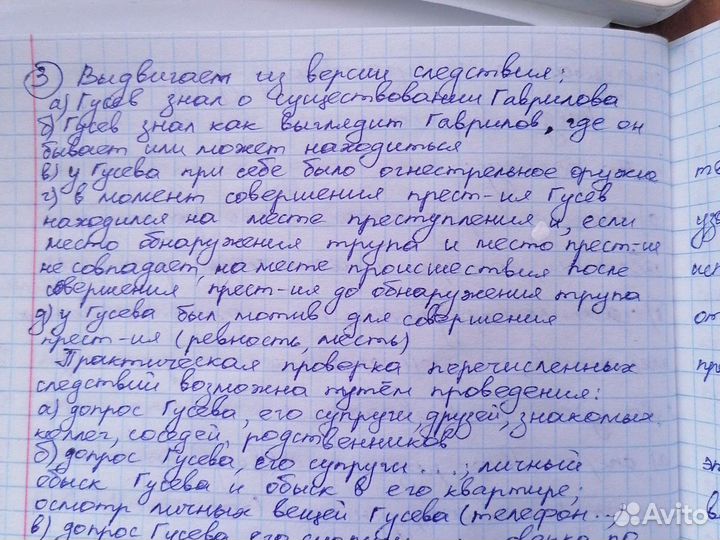 3) Выдвигает из версии следствия:
а) Гусев знал о существовании Гаврилова
б) Гусев знал как выглядит Гаврилов, где он
бывает или может находиться
в) у Гусева при себе было огнестрельное оружие
г) в момент совершения прест-ия Гусев
находился на месте преступления и, если
место обнаружения трупа и место прест-ие
не совпадает, на месте происшествия после
совершения прест-ия до обнаружения трупа
д) у Гусева был мотив для совершения
прест-ия (ревность, месть)
Практическая проверка перечисленных
следствий возможна путём проведения:
а) допрос Гусева, его супруги, друзей, знакомых
коллег, соседей, родственников
б) допрос Гусева, его супруги ...; личный
обыск Гусева и обыск в его квартире;
осмотр личных вещей Гусева (телефон ..;
в) допрос Гусева его по
тв
узе
исп
от
пр
эп
в
Avito